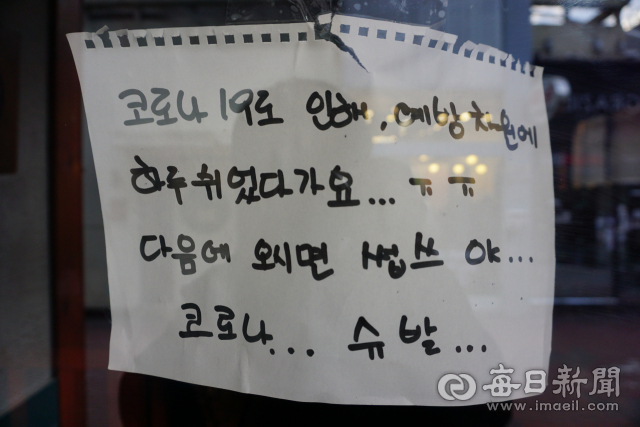 코로나 19로 인해, 예방차원에
하루 쉬었다가요... ㅠㅠ
다음에 오시면 썹쓰 야...
코로나... 슈발...
每日新聞
www.imaeil.com